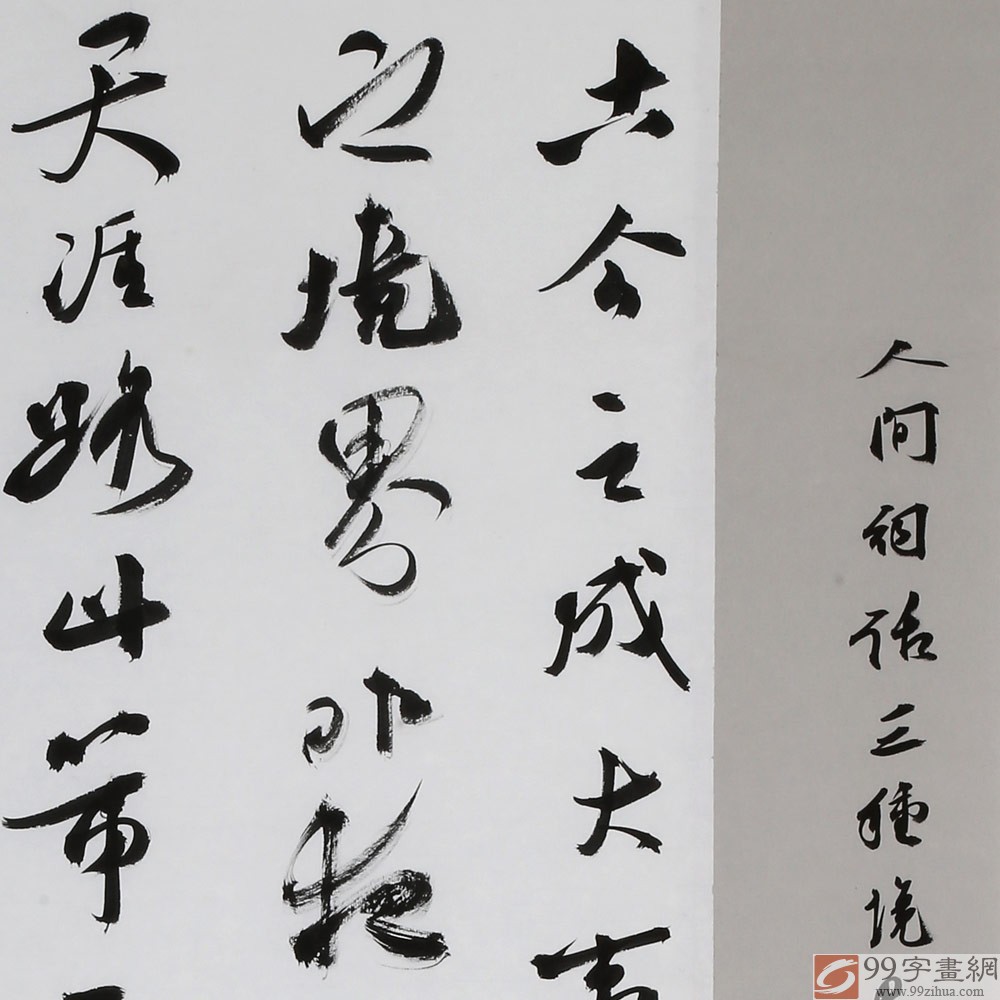 人间词话三種境
古今之成大事
之境界昨夜
天涯路此第
99字畫網
www.99zihua.com